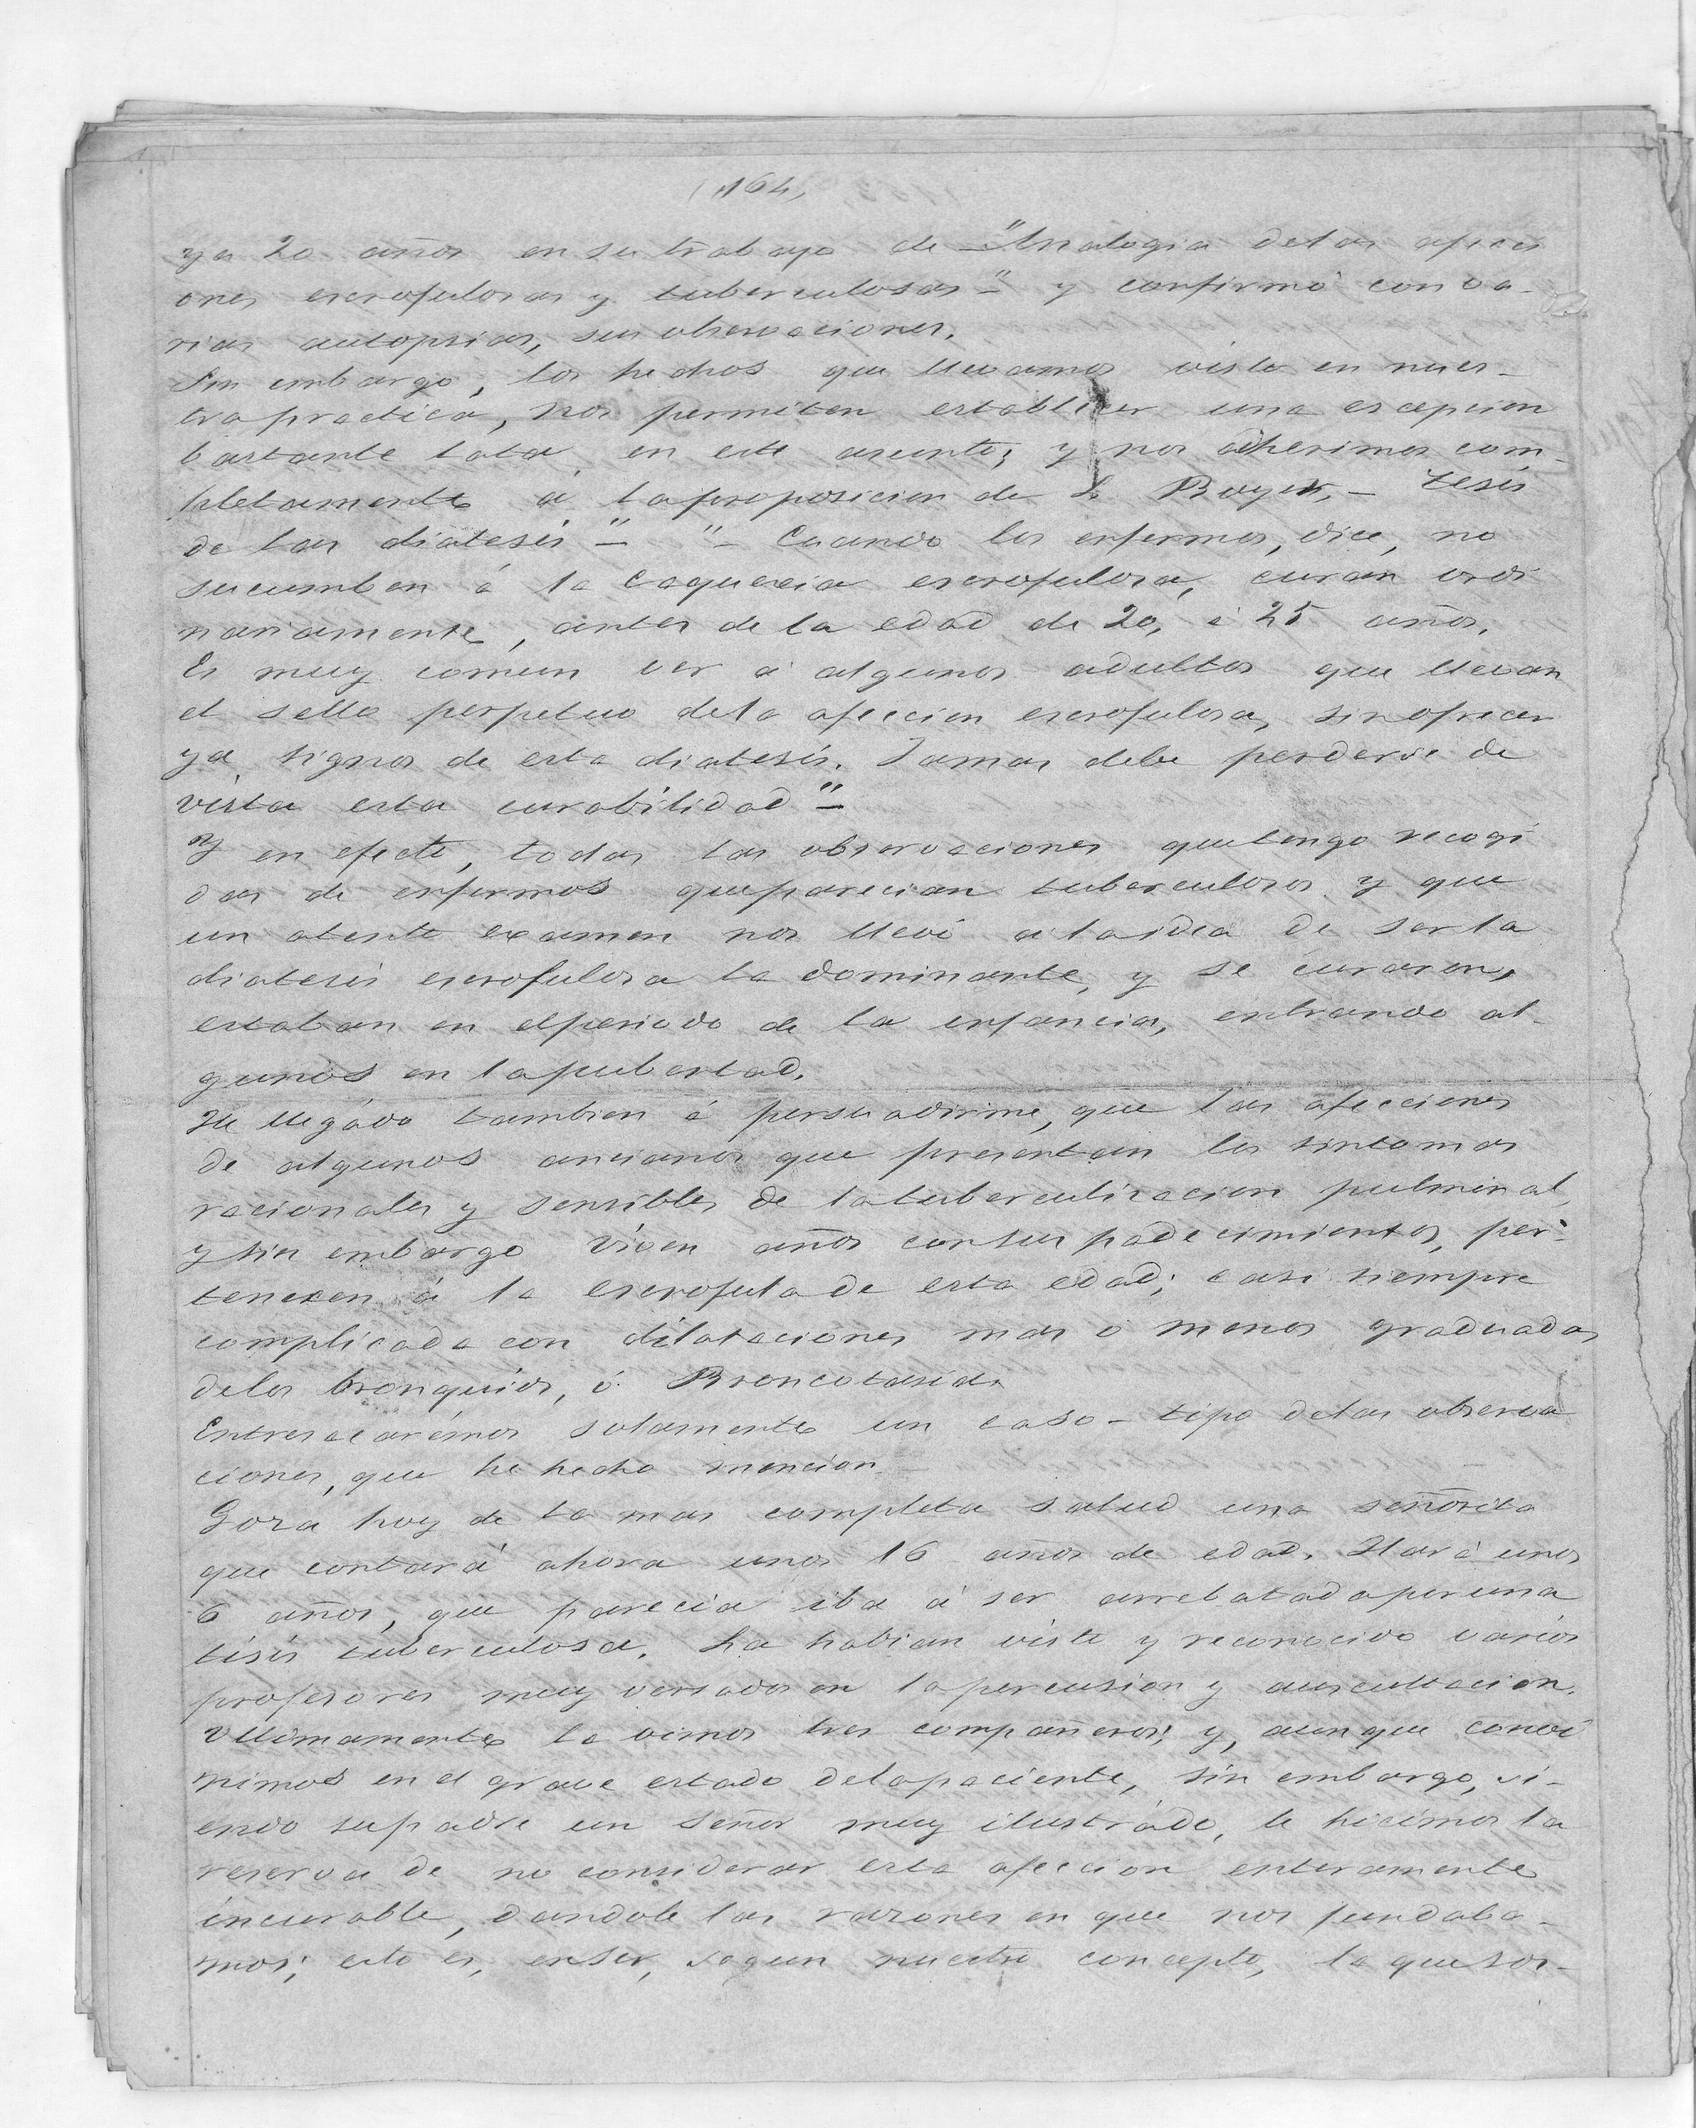 (164)
ya 20 años en su trabajo de -"Analogia delas afecci
ones escrofulosas y tuberculosas-" y confirmó con va-
rias autopsias, sus observaciones.
Sin embargo, los hechos que llevamos visto en nues-
tra practica, nos permiten establecer una escepcion
bastante lata, en este asunto; y nos adherimos com-
pletamente á la proposicion de L. Boyer, - Tesis
de las diatesis-" "- Cuando los enfermos, dice, no
sucumben á la caquexia escrofulosa, curan ordi
nariamente, antes de la edad de 20, á 25 años.
Es muy comun ver á algunos adultos que llevan
el sello perpetuo dela afeccion escrofulosa, sin ofrecer
ya signos de esta diatesis. Jamas debe perderse de
vista esta curabilidad"-
Y en efecto, todas las observaciones que tengo recogi
das de enfermos que parecian tuberculosos y que
un atento examen nos llevó a la idea de ser la
diatesis escrofulosa la dominante, y se curaron,
estaban en el periodo de la infancia, entrando al-
gunos en la pubertad.
He llegádo tambien á persuadirme, que las afecciones
de algunos ancianos que presentan los sintomas
racionales y sensibles de la tuberculizacion pulminal,
y sin embargo viven años con sus padecimientos, per-
tenecen á la escrofula de esta edad; casi siempre
complicada con dilataciones mas ó menos graduadas
delos bronquios, ó Broncotasia.
Entresacarémos solamente un caso-tipo delas observa
ciones, que he hecho mencion.
Goza hoy de la mas completa salud una señorita
que contará ahora unos 16 años de edad. Hará unos
6 años, que parecia iba á ser arrebatada por una
tisis tuberculosa. La habian visto y reconocido varios
profesores muy versados en la percusion y auscultacion.
Ultimamente la vimos tres compañeros; y, aunque convi
nimos en el grave estado dela paciente, sin embargo, si-
endo su padre un Señor muy ilustrádo, le hicimos la
reserva de no considerar esta afeccion enteramente
incurable, dandole las razones en que nos fundaba-
mos; esto es, en ser, segun nuestro concepto, la que sos-